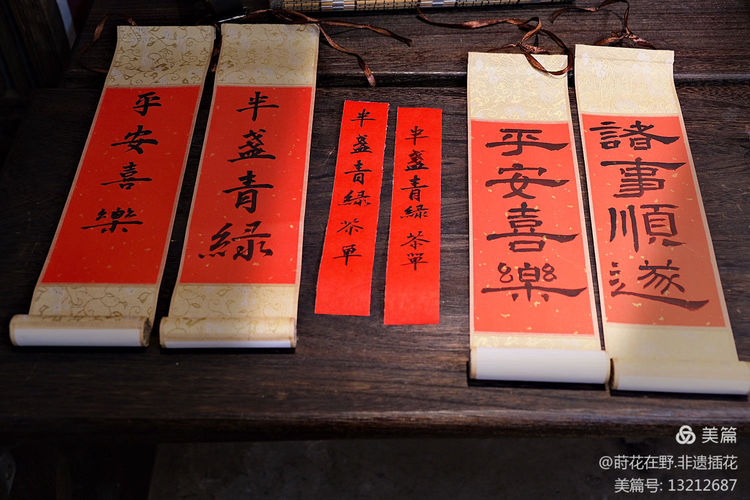 平安喜樂
半盞青緑
半盞青緑茶單
半盞青緑茶單
平安喜樂
諸事順遂
美篇
@莳花在野.非遗插花
美篇号: 13212687